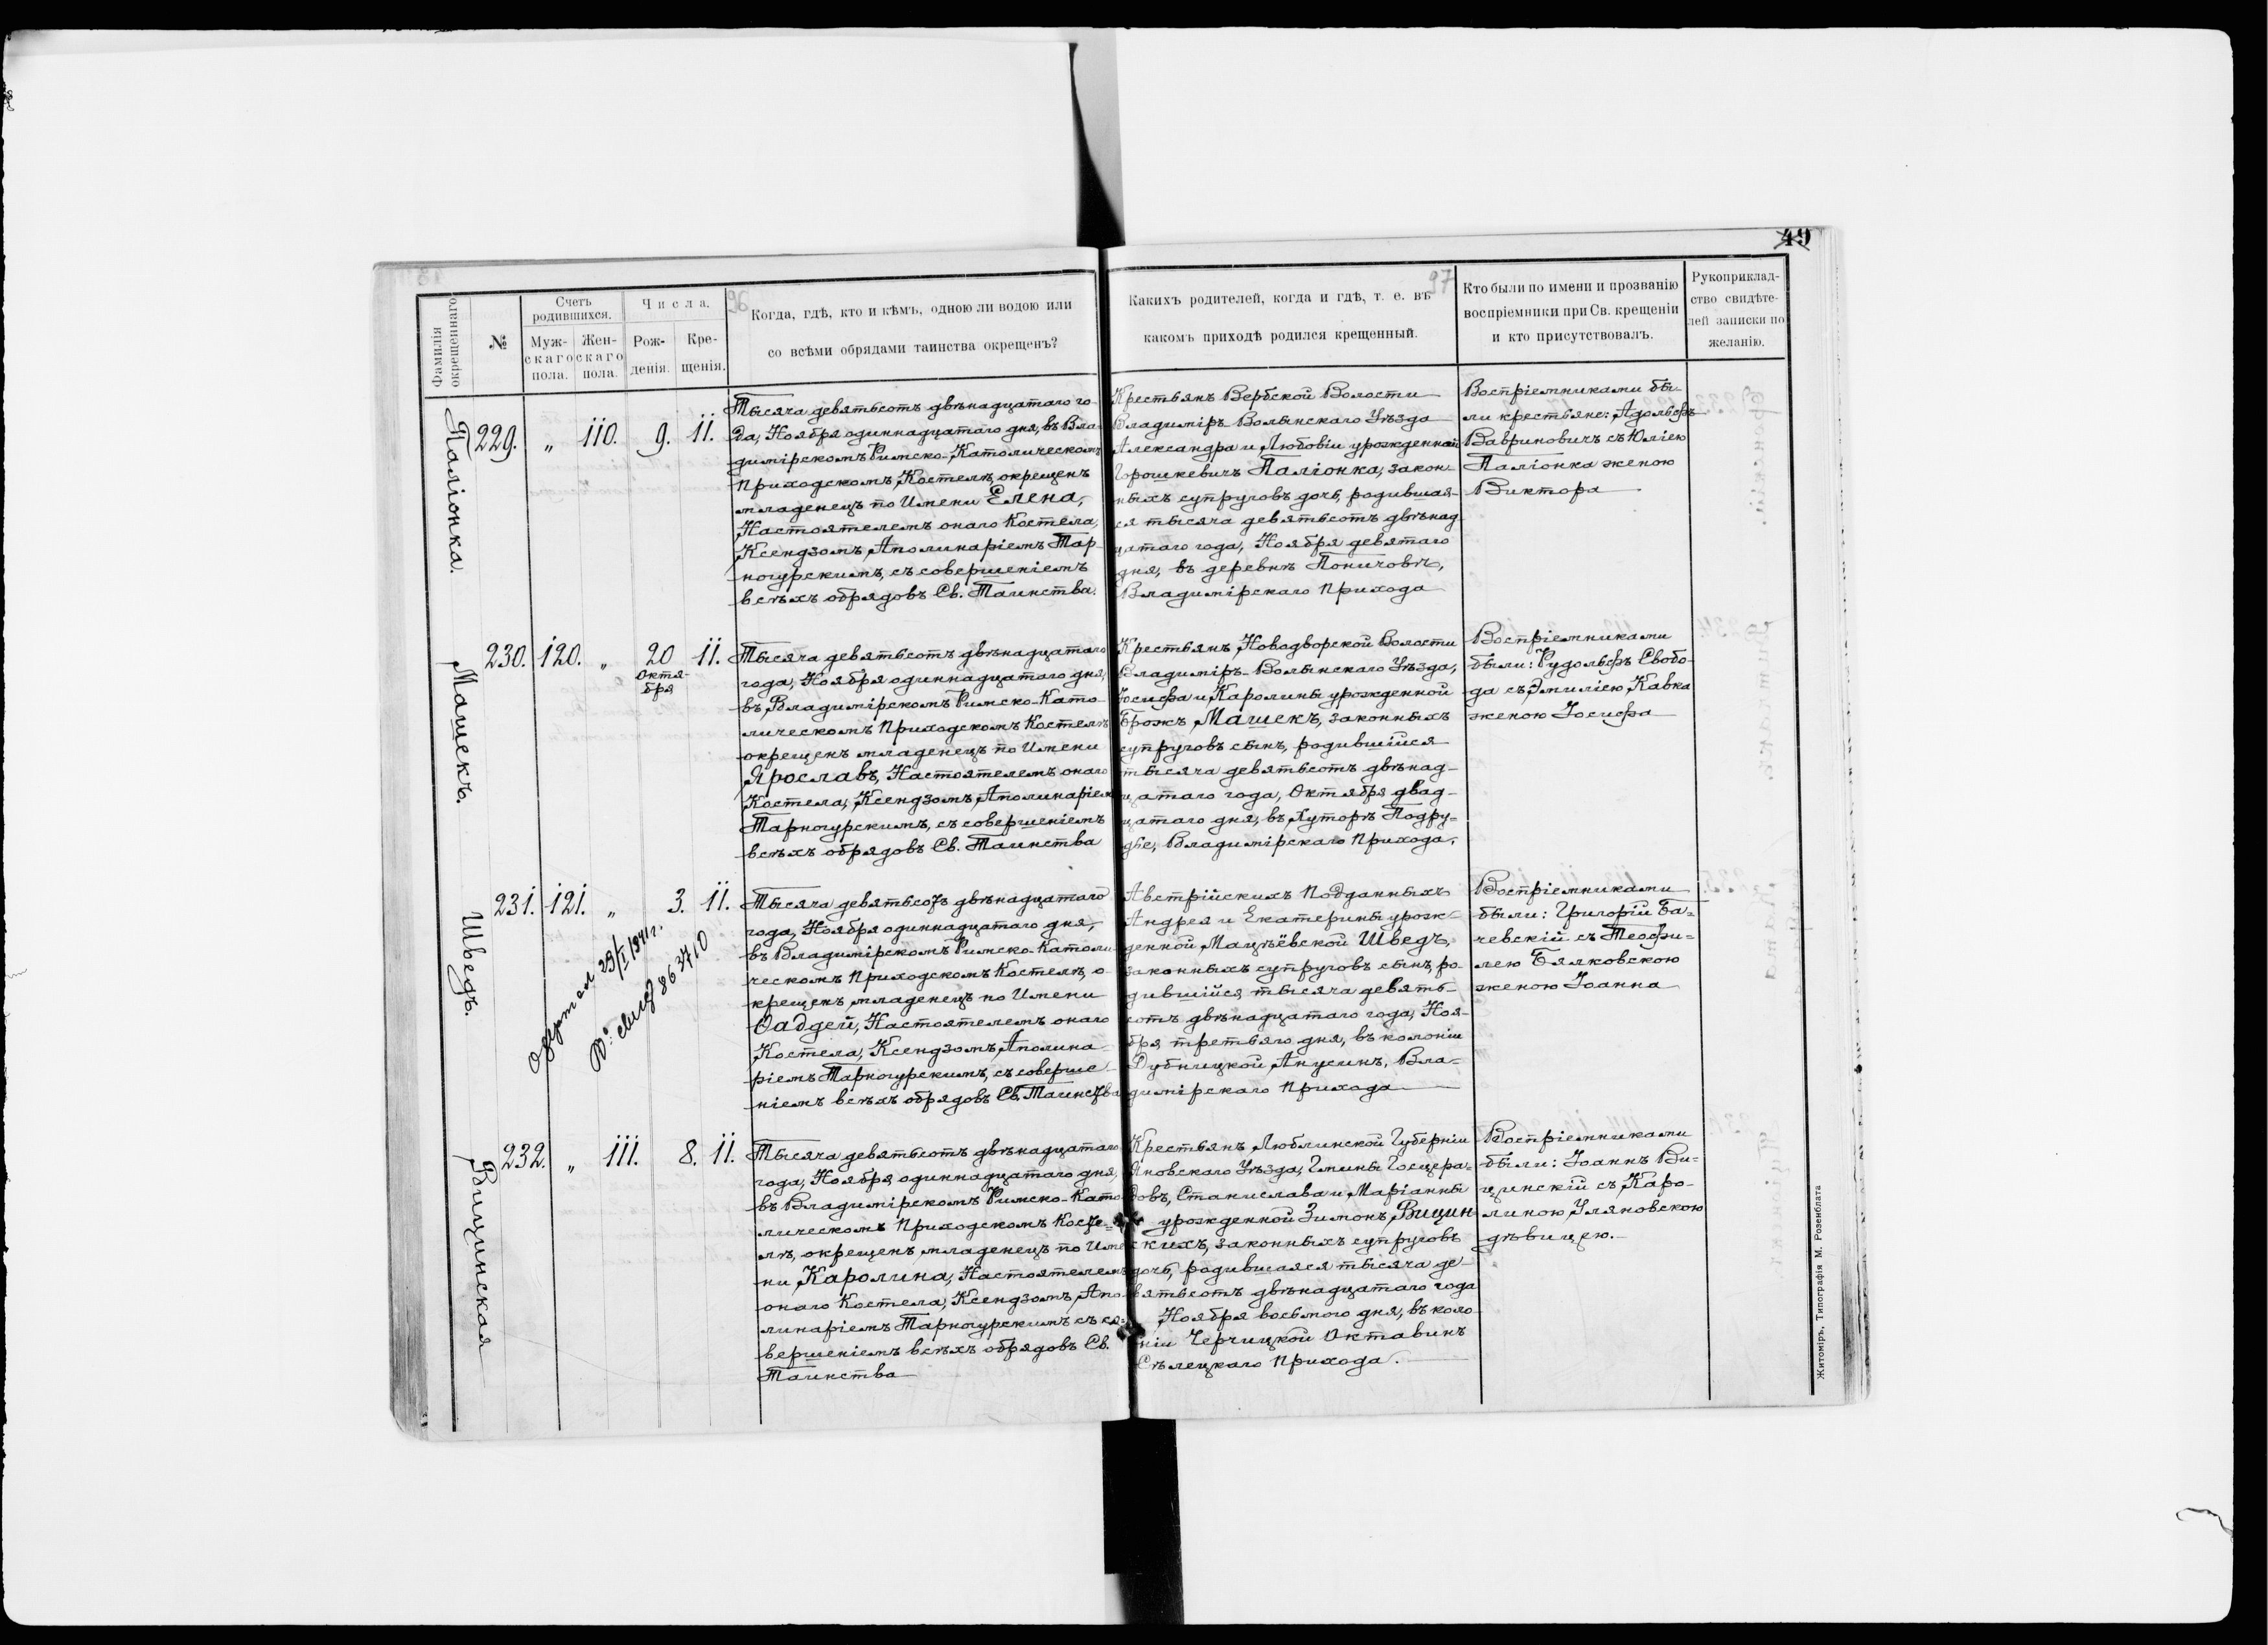 49
96
97
Фамилія окрещеннаго.
№
Счетъ родившихся.
Муж-
скаго
пола.
Жен-
скаго
пола.
Числа.
Рож-
денія.
Кре-
щенія.
Когда, гдѣ, кто и кѣмъ, одною ли водою или
со всѣми обрядами таинства окрещенъ?
Какихъ родителей, когда и гдѣ, т. е. въ
какомъ приходѣ родился крещенный.
Кто были по имени и прозванію
воспріемники при Св. крещеніи
и кто присутствовалъ.
Рукоприклад-
ство свидѣте-
лей записки по
желанію.
Паліонка.
229. „ 110. 9. 11.
Тысяча девятьсотъ двѣнадцатаго го-
да, Ноября одиннадцатаго дня, въ Вла-
димірскомъ Римско-Католическомъ
Приходскомъ Костелѣ, окрещенъ
младенецъ по Имени Елена,
Настоятелемъ онаго Костела,
Ксендзомъ Аполинаріемъ Тар-
ногурскимъ, съ совершеніемъ
всѣхъ обрядовъ Св. Таинства.
Крестьянъ Вербской Волости
Владиміръ Волынскаго Уѣзда
Александра и Любовіи урожденной
Горошкевичъ Паліонка, закон-
ныхъ супруговъ дочь, родившая-
ся тысяча девятьсотъ двѣнад
цатаго года, Ноября девятаго
дня, въ деревнѣ Поничовѣ,
Владимірскаго Прихода
Воспріемниками бы-
ли крестьяне: Адольфъ
Вавриновичъ съ Юліею
Паліонка женою
Виктора
Машекъ.
230. 120. „ 20 Октя-
бря 11.
Тысяча девятьсотъ двѣнадцатаго
года, Ноября одиннадцатаго дня,
въ Владимірскомъ Римско-Като-
лическомъ Приходскомъ Костелѣ
окрещенъ младенецъ по Имени
Ярославъ, Настоятелемъ онаго
Костела, Ксендзомъ Аполинаріемъ
Тарногурскимъ, съ совершеніемъ
всѣхъ обрядовъ Св. Таинства
Крестьянъ Новодворской Волости
Владиміръ-Волынскаго Уѣзда,
Іосифа и Каролины урожденной
Брожъ Машекъ, законныхъ
супруговъ сынъ, родившійся
тысяча девятьсотъ двѣнад-
цатаго года, Октября двад-
цатаго дня, въ Хуторѣ Подру-
дье, Владимірскаго Прихода.
Воспріемниками
были: Рудольфъ Свобо-
да съ Эмиліею Кавка
женою Іосифа
Шведъ.
231. 121. „ 3. 11.
29/I 1941 г.
863710
Тысяча девятьсотъ двѣнадцатаго
года, Ноября одиннадцатаго дня,
въ Владимірскомъ Римско-Католи-
ческомъ Приходскомъ Костелѣ, о-
крещенъ младенецъ по Имени
Ѳаддей, Настоятелемъ онаго
Костела, Ксендзомъ Аполина-
ріемъ Тарногурскимъ, съ соверше-
ніемъ всѣхъ обрядовъ Св. Таинства
Австрійскихъ Подданныхъ
Андрея и Екатерины урож-
денной Мацѣёвской Шведъ,
законныхъ супруговъ сынъ, ро-
дившійся тысяча девять-
сотъ двѣнадцатаго года, Ноя-
бря третьяго дня, въ колоніи
Дубницкой Анусинъ, Вла-
димірскаго Прихода
Воспріемниками
были: Григорій Ба-
чевскій съ Теофи-
лею Бялковскою
женою Іоанна
Вицинская
232. „ 111. 8. 11.
Тысяча девятьсотъ двѣнадцатаго
года, Ноября одиннадцатаго дня,
въ Владимірскомъ Римско-Като-
лическомъ Приходскомъ Косте-
лѣ, окрещенъ младенецъ по Име
ни Каролина, Настоятелемъ
онаго Костела, Ксендзомъ Апо-
линаріемъ Тарногурскимъ съ со-
вершеніемъ всѣхъ обрядовъ Св.
Таинства
Крестьянъ Люблинской Губерніи
Яновскаго Уѣзда, Гмины Госцера-
довъ, Станислава и Маріанны
урожденной Зимонъ Вицин-
скихъ, законныхъ супруговъ
дочь, родившаяся тысяча де-
вятьсотъ двѣнадцатаго года
Ноября восьмого дня, въ коло-
ніи Черчицкой Октавинъ
Сѣлецкаго Прихода.
Воспріемниками
были: Іоаннъ Ви-
цинскій съ Каро-
линою Уляновскою
дѣвицею.
Житоміръ, Типографія М. Розенблата